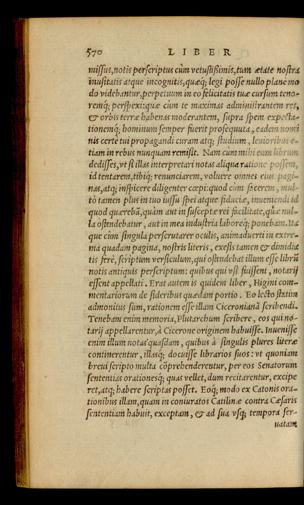 570 LIBER
missus, notis perscriptus cùm vetustissimis, tum ætate nostra
inusitatis atque incognitis, quæq; legi posse nullo plane mo
do videbantur, perpetuum in eo felicitatis tuæ cursum teno-
remq; perspexitque cùm te maximas administrantem res,
& orbis terræ habenas moderantem, supra spem expecta-
tionemq; hominum semper fuerit prosequuta, eadem nomi
nis certe tui propagandi curam atq; studium, leuioribus e-
tiam in rebus nunquam remisit. Nam cum mihi eum librum
dedisses, vt si illas interpretari notas aliqua ratione possem,
id tentarem, tibiq; renunciarem, voluere omnes eius pagi-
nas, atq; inspicere diligenter cœpi: quod cùm facerem, mul-
tò tamen plus in tuo iussu spei atque fiduciæ, inueniendi id
quod quærebā, quàm aut in suscepta rei facilitate, quæ nul-
la ostendebatur, aut in mea industria laboreq; ponebam. Ita
que cùm singula perscrutarer oculis, animaduerti in extre-
ma quadam pagina, nostris literis, exesis tamen & dimidia
tis ferè, scriptum versiculum, qui ostendebat illum esse librū
notis antiquis perscriptum: quibus qui vsi fuissent, notarij
essent appellati. Erat autem is quidem liber, Higini com-
mentariorum de sideribus quædam portio. Eo lecto statim
admonitus sum, rationem esse illam Ciceronianā scribendi.
Tenebam enim memoria, Plutarchum scribere, eos qui no-
tarij appellarentur, à Cicerone originem habuisse. Inuenisse
enim illum notas quasdam, quibus à singulis plures literæ
continerentur, illasq; docuisse librarios suos: vt quoniam
breui scripto multa cōprehenderetur, per eos Senatorum
sententias orationesq; quas vellet, dum recitarentur, excipe
ret, atq; habere scriptas posset. Eoq; modo ex Catonis ora-
tionibus illam, quam in coniuratos Catilinæ contra Cæsaris
sententiam habuit, exceptam, & ad sua vsq; tempora ser-
uatam